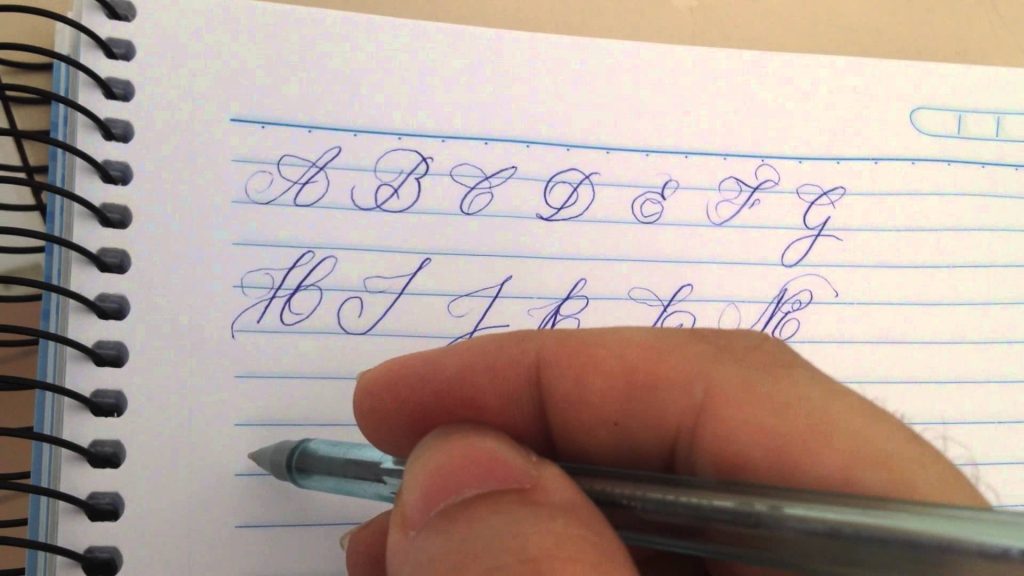 A B C D E F G
H I J K L M